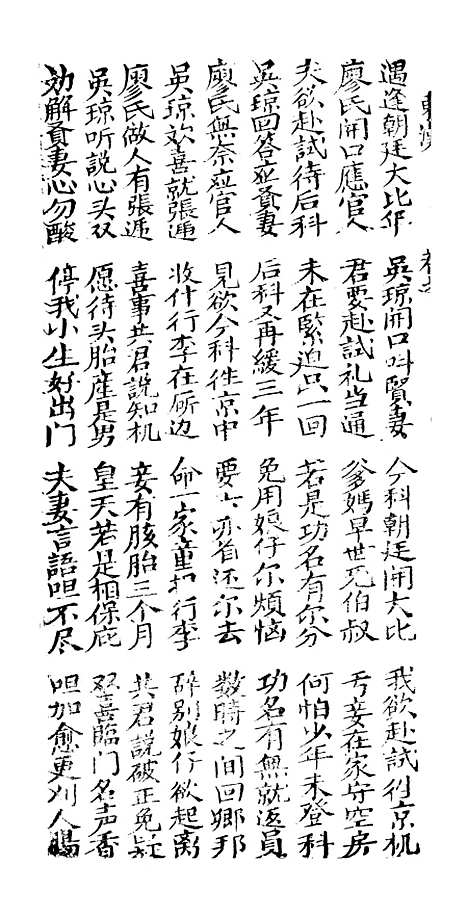 遇逢朝廷大比年 吳琼開口叫賢妻 今科朝廷開大比 我欲赴試往京机
廖氏開口應官人 君要赴試礼当通 爹媽早世无伯叔 亏妾在家守空房
夫欲赴試待后科 未在緊迫只一回 若是功名有尔分 何怕少年未登科
吳琼回答应賢妻 后科又再緩三年 免用娘仔尔煩惱 功名有無就返員
廖氏無奈应官人 見欲今科往京中 要去亦还尔去 数時之间回鄉邦
吳琼欢喜就張逓 收什行李在所边 命一家童担行李 辞别娘仔欲起离
廖氏做人有張逓 喜事共君説知机 妾有胲胎三个月 共君説破正免疑
吳琼听説心头双 愿待头胎產是男 皇天若是相保庇 喜臨门名声香
劝解賢妻心勿酸 停我小生好出门 夫妻言語呾不尽 呾加愈更刈人腸